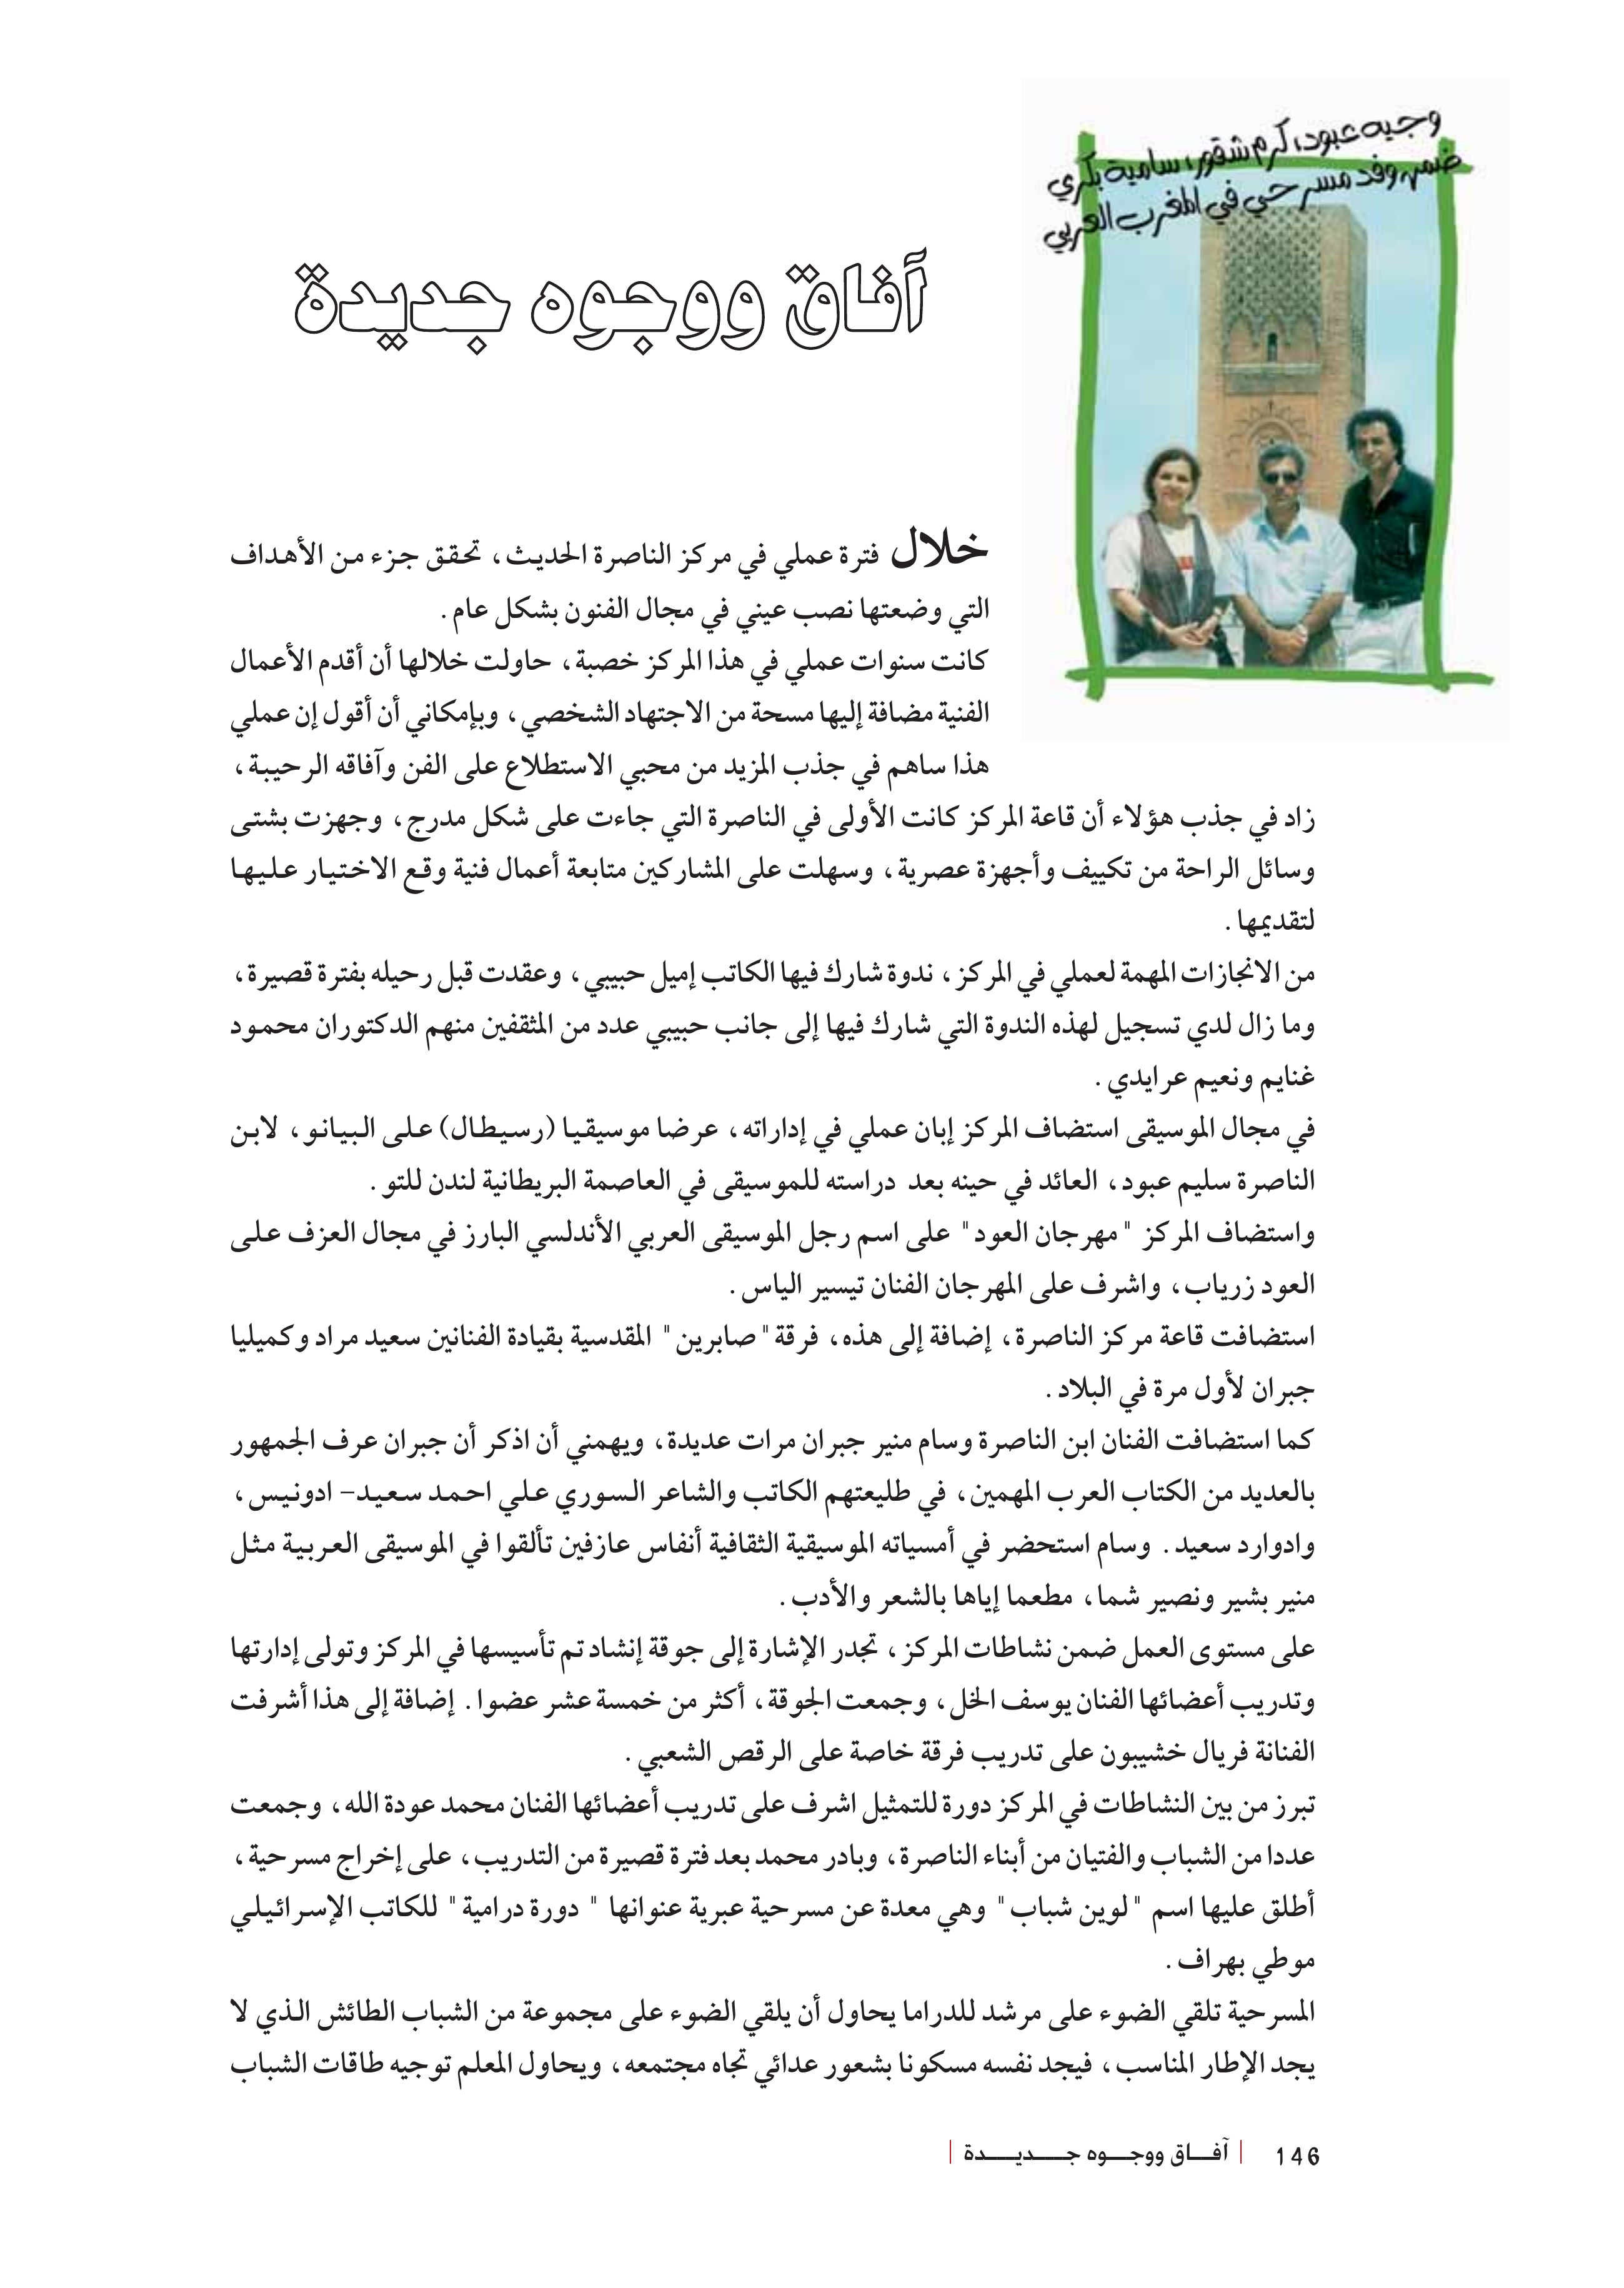 وجيه عبود، كرم شقور، سامية بكري
ضمن وفد مسرحي في المغرب العربي
آفاق ووجوه جديدة
خلال فترة عملي في مركز الناصرة الحديث، تحقق جزء من الأهداف
التي وضعتها نصب عيني في مجال الفنون بشكل عام.
كانت سنوات عملي في هذا المركز خصبة، حاولت خلالها أن أقدم الأعمال
الفنية مضافة إليها مسحة من الاجتهاد الشخصي، وبإمكاني أن أقول إن عملي
هذا ساهم في جذب المزيد من محبي الاستطلاع على الفن وآفاقه الرحيبة،
زاد في جذب هؤلاء أن قاعة المركز كانت الأولى في الناصرة التي جاءت على شكل مدرج، وجهزت بشتى
وسائل الراحة من تكييف وأجهزة عصرية، وسهلت على المشاركين متابعة أعمال فنية وقع الاختيار عليها
لتقديمها.
من الانجازات المهمة لعملي في المركز، ندوة شارك فيها الكاتب إميل حبيبي، وعقدت قبل رحيله بفترة قصيرة،
وما زال لدي تسجيل لهذه الندوة التي شارك فيها إلى جانب حبيبي عدد من المثقفين منهم الدكتوران محمود
غنايم ونعيم عرايدي.
في مجال الموسيقى استضاف المركز إبان عملي في إداراته، عرضا موسيقيا (رسيطال) على البيانو، لابن
الناصرة سليم عبود، العائد في حينه بعد دراسته للموسيقى في العاصمة البريطانية لندن للتو.
واستضاف المركز "مهرجان العود" على اسم رجل الموسيقى العربي الأندلسي البارز في مجال العزف على
العود زرياب، واشرف على المهرجان الفنان تيسير الياس.
استضافت قاعة مركز الناصرة، إضافة إلى هذه، فرقة "صابرين" المقدسية بقيادة الفنانين سعيد مراد وكميليا
جبران لأول مرة في البلاد.
كما استضافت الفنان ابن الناصرة وسام منير جبران مرات عديدة، ويهمني أن اذكر أن جبران عرف الجمهور
بالعديد من الكتاب العرب المهمين، في طليعتهم الكاتب والشاعر السوري علي احمد سعيد– ادونيس،
وادوارد سعيد. وسام استحضر في أمسياته الموسيقية الثقافية أنفاس عازفين تألقوا في الموسيقى العربية مثل
منير بشير ونصير شما، مطعما إياها بالشعر والأدب.
على مستوى العمل ضمن نشاطات المركز، تجدر الإشارة إلى جوقة إنشاد تم تأسيسها في المركز وتولى إدارتها
وتدريب أعضائها الفنان يوسف الخل، وجمعت الجوقة، أكثر من خمسة عشر عضوا. إضافة إلى هذا أشرفت
الفنانة فريال خشيبون على تدريب فرقة خاصة على الرقص الشعبي.
تبرز من بين النشاطات في المركز دورة للتمثيل اشرف على تدريب أعضائها الفنان محمد عودة الله، وجمعت
عددا من الشباب والفتيان من أبناء الناصرة، وبادر محمد بعد فترة قصيرة من التدريب، على إخراج مسرحية،
أطلق عليها اسم "لوين شباب" وهي معدة عن مسرحية عبرية عنوانها "دورة درامية" للكاتب الإسرائيلي
موطي بهراف.
المسرحية تلقي الضوء على مرشد للدراما يحاول أن يلقي الضوء على مجموعة من الشباب الطائش الذي لا
يجد الإطار المناسب، فيجد نفسه مسكونا بشعور عدائي تجاه مجتمعه، ويحاول المعلم توجيه طاقات الشباب
146 | آفـــاق ووجـــوه جـــديـــدة |